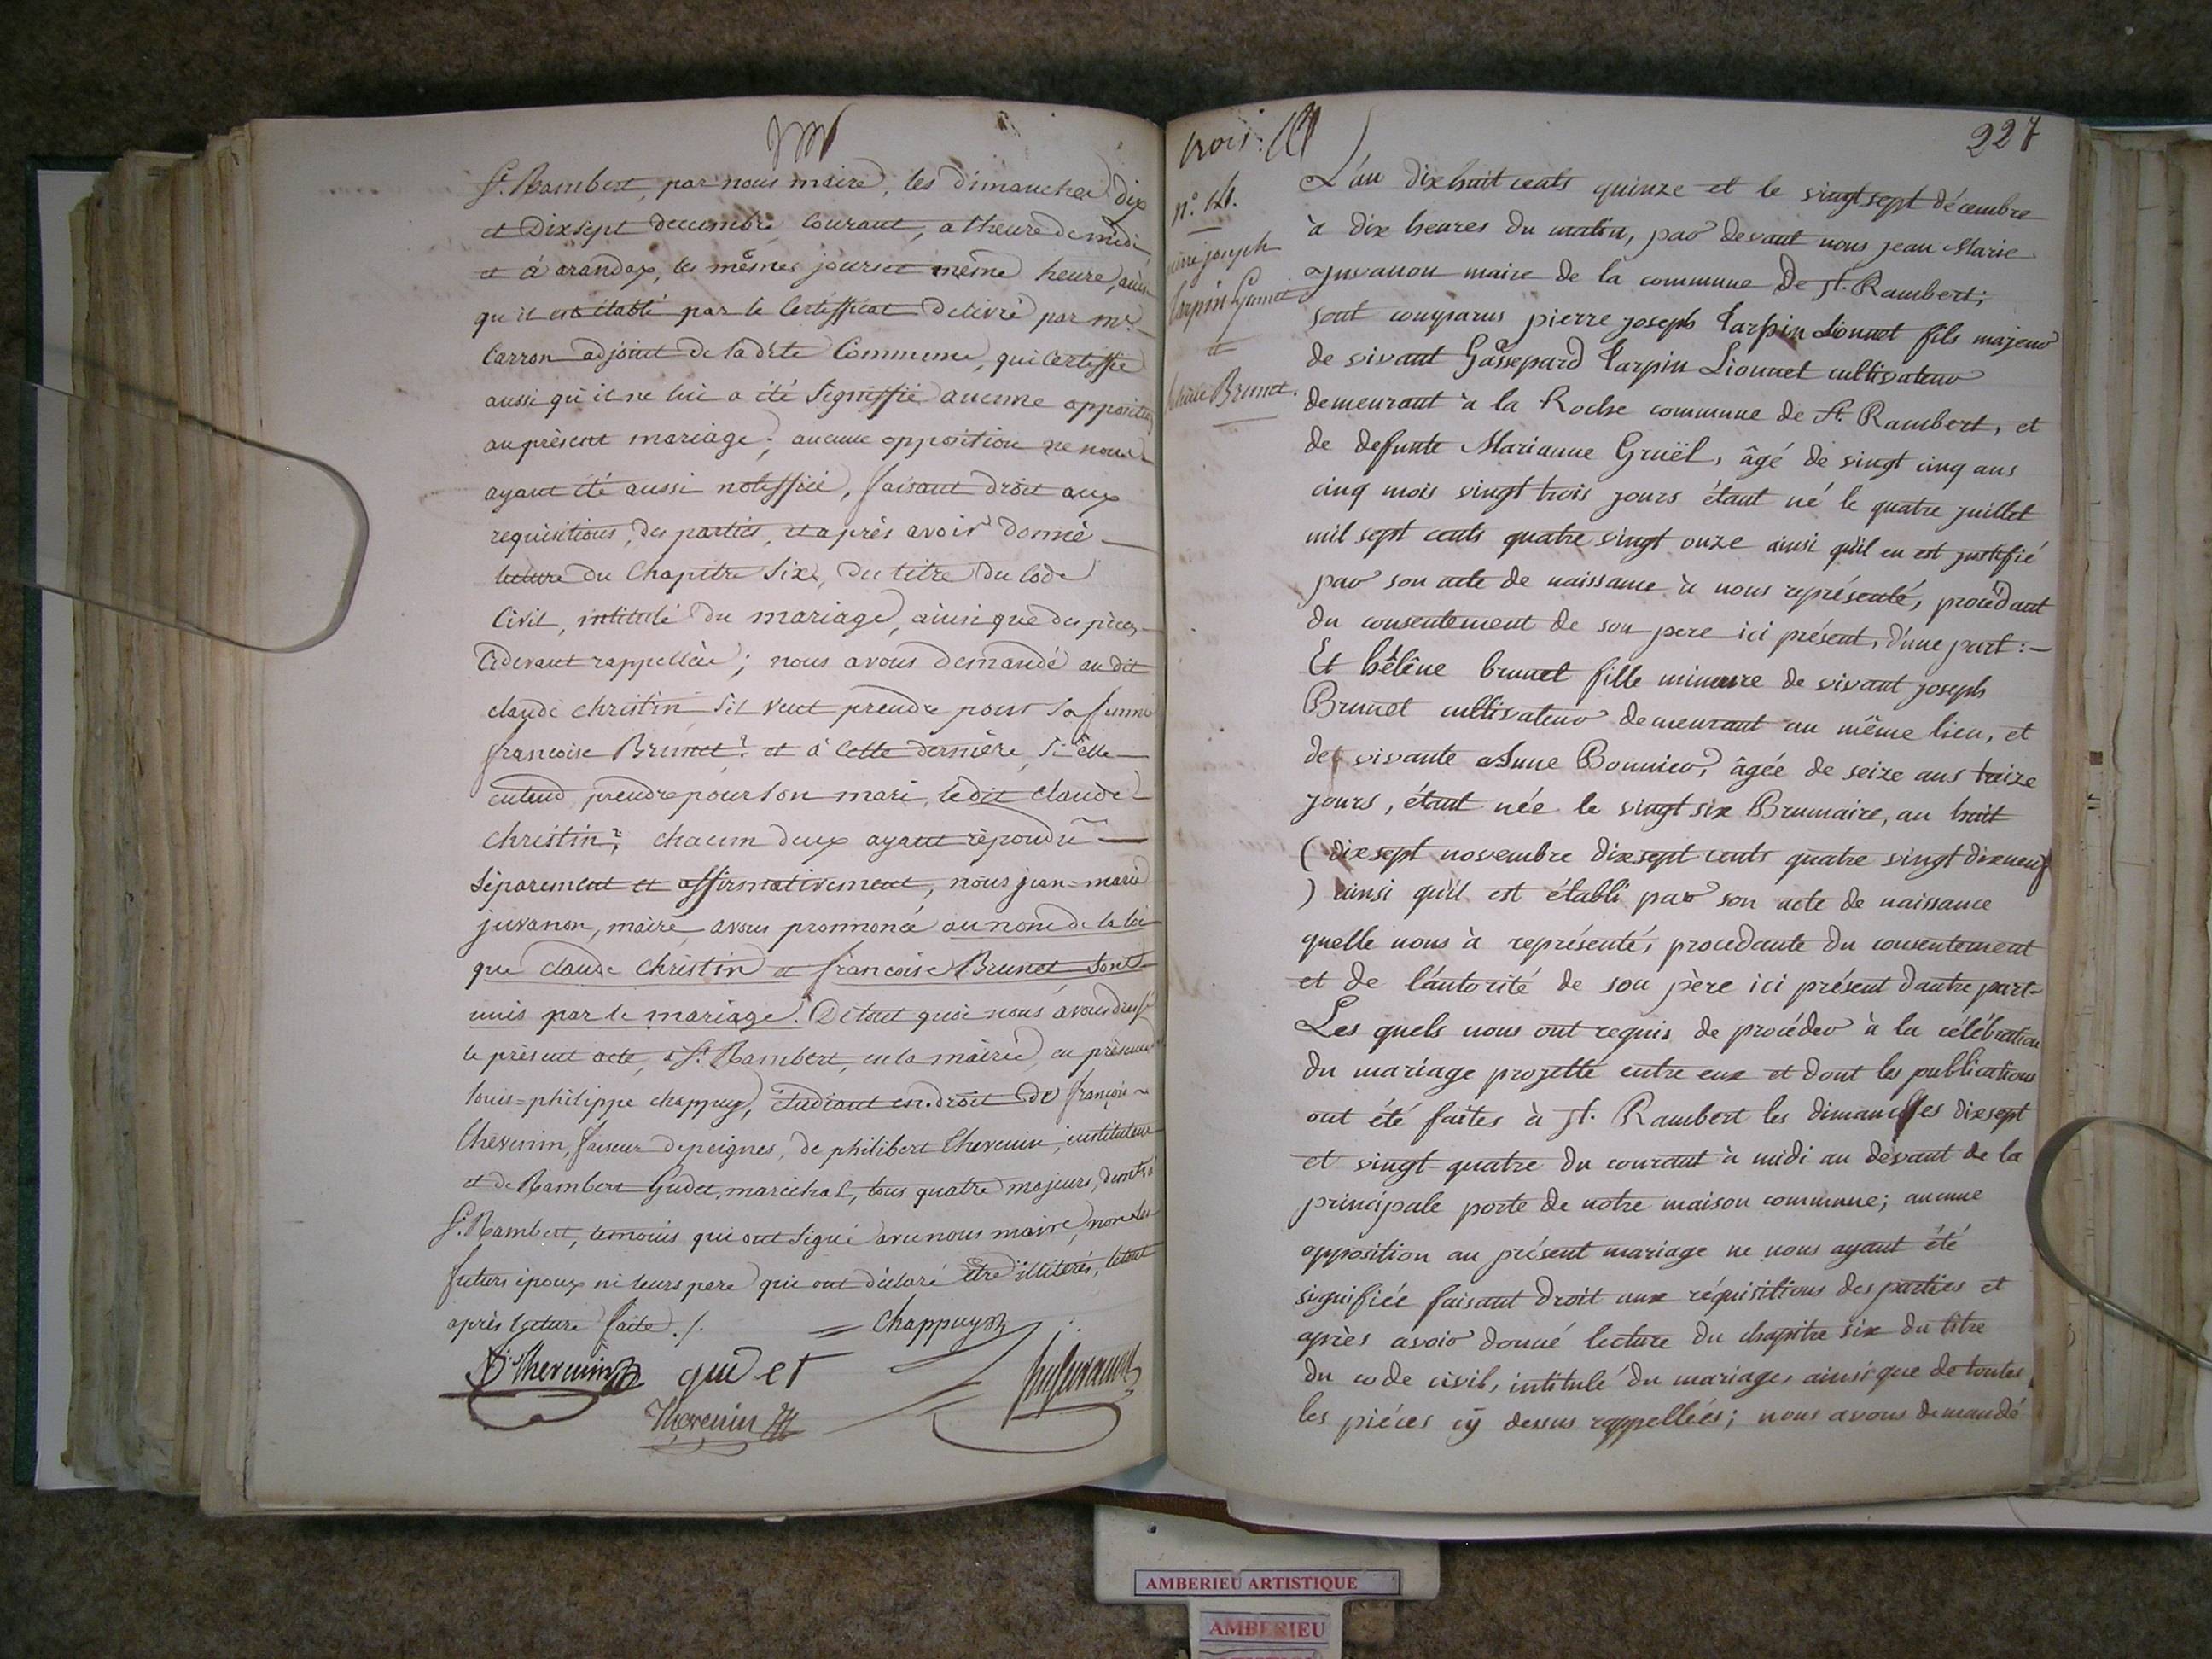 St. Rambert, par nous maire, les dimanches dix
et dixsept decembre courant, a l'heure de midi
et à arandas, les mêmes jours et même heure, ainsi
qu'il est établi par le certifficat delivré par mr.
Carron adjoint de la dite Commune, qui certiffie
aussi qu'il ne lui a été signiffié aucune opposition
au présent mariage; aucune opposition ne nous
ayant été aussi notiffiée, faisant droit aux
requisitions, des parties, et après avoir donné
lecture du Chapitre Six, du titre du Code
Civil, intitulé du mariage, ainsi que des pièces
Cidevant rappellées; nous avons demandé au dit
claude christin s'il veut prendre pour sa femme
francoise Brunet? et à cette dernière, si elle
entend prendre pour son mari, le dit claude
christin? chacun deux ayant répondu
séparement et affirmativement, nous jean=marie
juvanon, maire avons prononcé au nom de la loi
que claude christin et francoise Brunet sont
unis par le mariage. De tout quoi nous avons dressé
le présent acte, à St. Rambert, en la mairie, en présence
louis=philippe chappuy, étudiant en droit de françois
Thevenin, faiseur de peignes, de philibert Thevenin, instituteur
et de Rambert Gudet, maréchal, tous quatre majeurs, demt. à
St. Rambert, temoins qui ont signé avec nous maire, non les
futurs époux ni leurs pere qui ont déclaré être illiterés, le tout
après lecture faite ./.
Chappuys
Thevenin gudet
Thevenin
juvanon
trois
227
n°. 121.
pierre joseph
tarpin Lionnet
et
hélène Brunet.
L'an dixhuit cents quinze et le vingtsept décembre
à dix heures du matin, par devant nous jean Marie
Juvanon maire de la commune de St. Rambert;
sont comparus pierre joseph tarpin Lionnet fils majeur
de vivant Gassepard tarpin Lionnet cultivateur
demeurant à la Roche commune de St. Rambert, et
de defunte Marianne Gruël, âgé de vingt cinq ans
cinq mois vingt trois jours étant né le quatre juillet
mil sept cents quatre vingt onze ainsi qu'il en est justifié
par son acte de naissance à nous représenté, procédant
du consentement de son pere ici présent, d'une part:
Et hélène brunet fille mineure de vivant joseph
Brunet cultivateur demeurant au même lieu, et
de vivante Anne Bonnier, âgée de seize ans treize
jours, étant née le vingt six Brumaire, an huit
(dixsept novembre dixsept cents quatre vingt dixneuf
) ainsi qu'il est établi par son acte de naissance
quelle nous à représenté, procedante du consentement
et de l'autorité de son père ici présent dautre part
Les quels nous ont requis de procéder à la célébration
du mariage projetté entre eux et dont les publications
ont été faites à St. Rambert les dimanches dixsept
et vingt-quatre du courant à midi au devant de la
principale porte de notre maison commune; aucune
opposition au présent mariage ne nous ayant été
signifiée faisant droit aux réquisitions des parties et
après avoir donné lecture du chapitre six du titre
du code civil, intitulé du mariage, ainsi que de toutes
les piéces cy dessus rappellées; nous avons demandé
AMBERIEU ARTISTIQUE
AMBERIEU